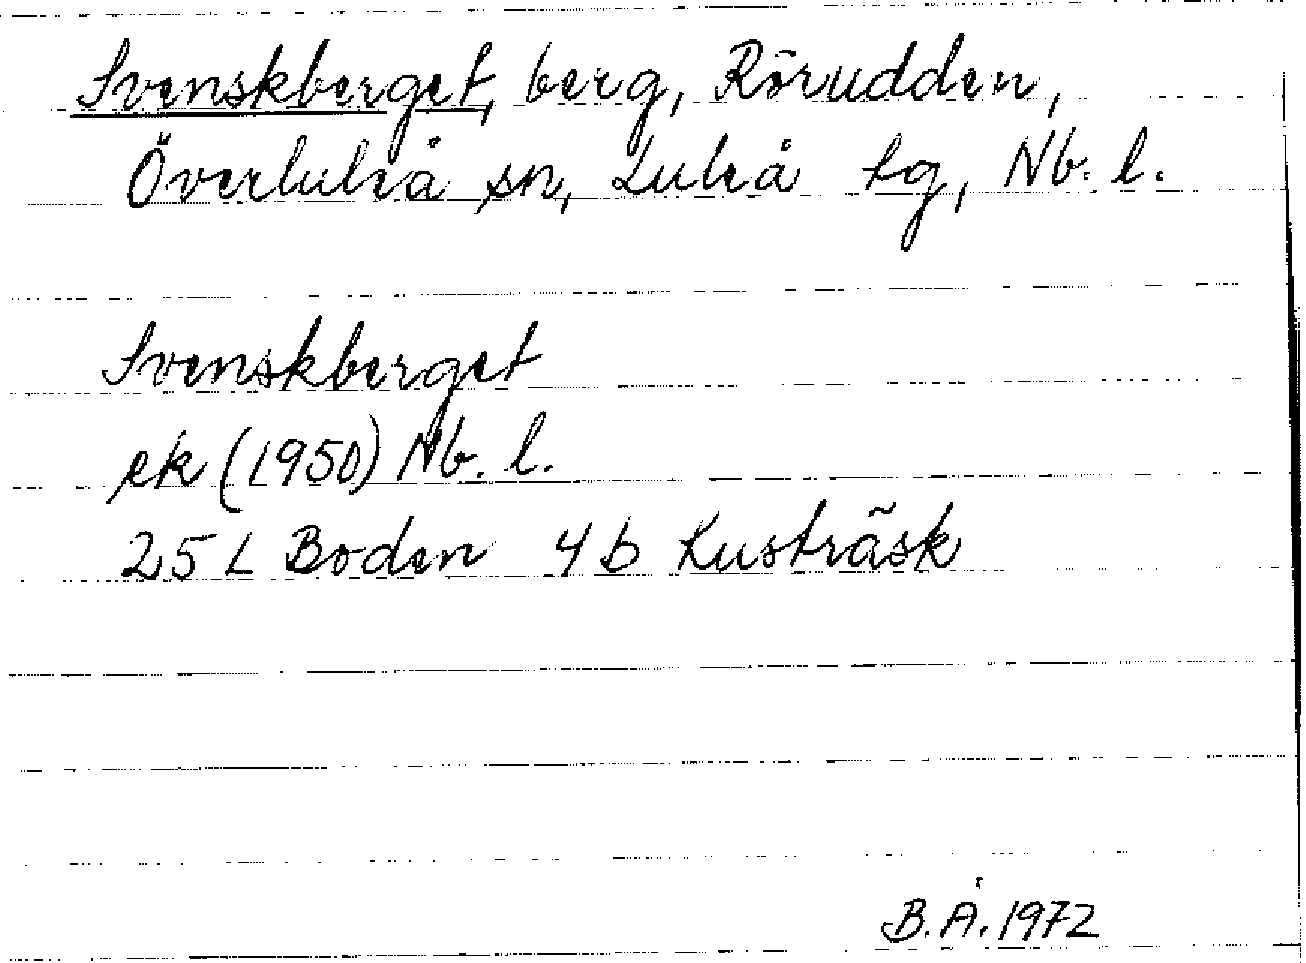 Svenskberget, berg, Rörudden,
Överluleå sn, Luleå tg, Nb. l.
Svenskberget
ek (1950) Nb. l.
25 L Boden 4 b Kusträsk
B.Å. 1972